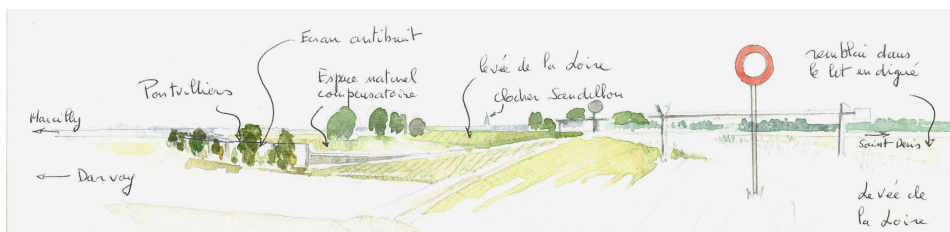 Ecran antibruit
Pontvilliers
Espace naturel
compensatoire
levée de la Loire
clocher Sandillon
remblai dans
le lit endigué
Marcilly
Darvoy
Saint Denis
Levée de
la Loire